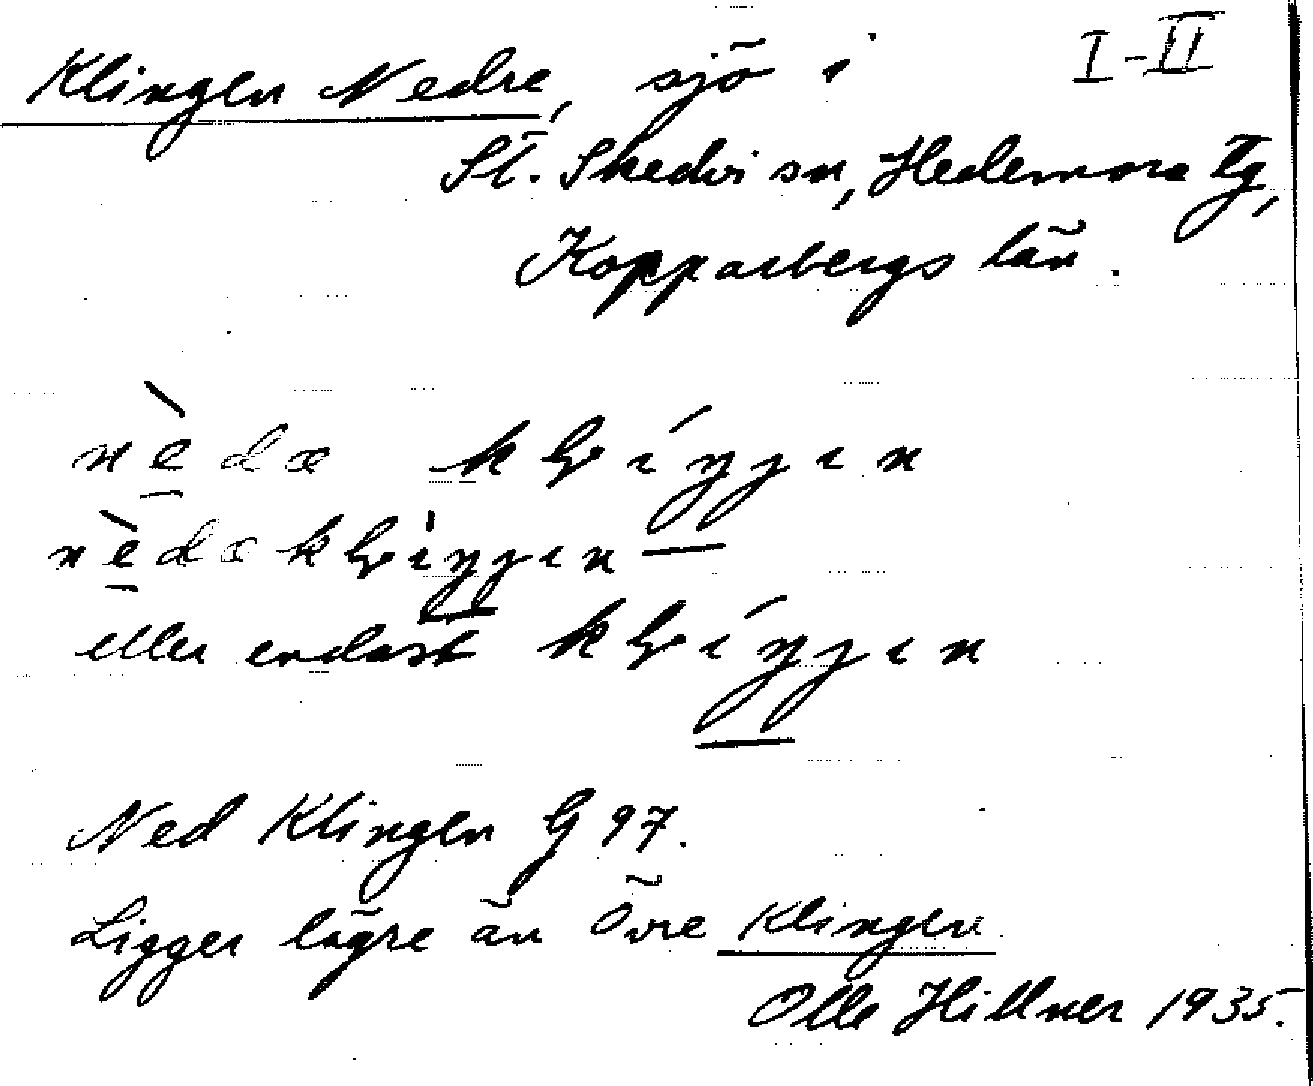 Klingen Nedre, sjö i I-II
St. Skedvi sn, Hedemora Tg,
Kopparbergs län.
nèdæ klíŋŋɩn
nèdæklìŋŋɩn
eller endast klíŋŋɩn
Ned Klingen G 97.
Ligger lägre än Övre Klingen.
Olle Hillner 1935.